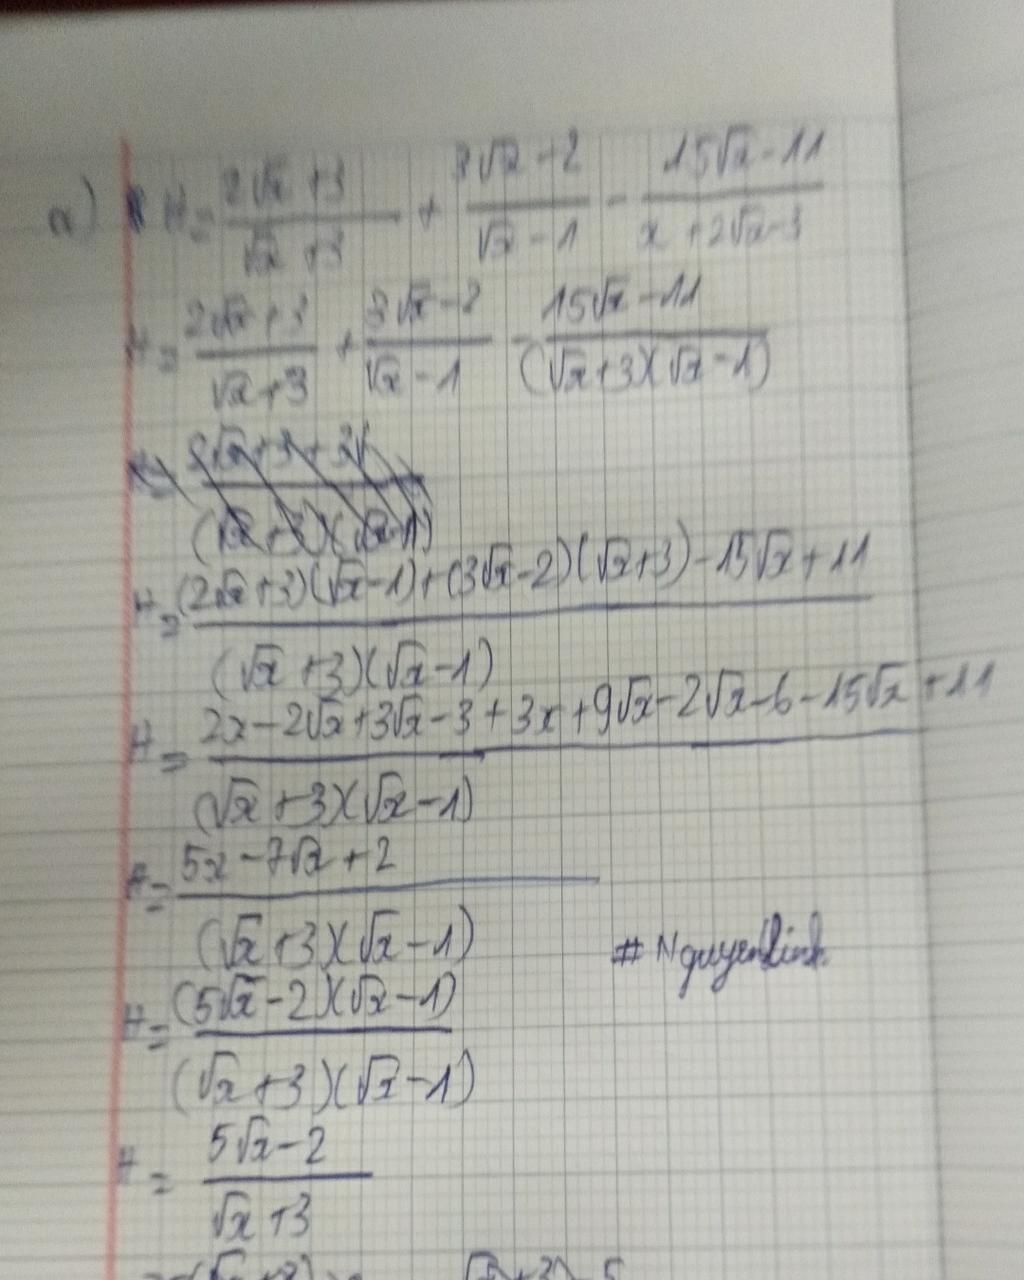 a) A = (2√x + 3)/(√x + 3) + (3√x - 2)/(√x - 1) - (15√x - 11)/(x + 2√x - 3)
A = (2√x + 3)/(√x + 3) + (3√x - 2)/(√x - 1) - (15√x - 11)/((√x + 3)(√x - 1))
A = ((2√x + 3)(√x - 1) + (3√x - 2)(√x + 3) - 15√x + 11)/((√x + 3)(√x - 1))
A = (2x - 2√x + 3√x - 3 + 3x + 9√x - 2√x - 6 - 15√x + 11)/((√x + 3)(√x - 1))
A = (5x - 7√x + 2)/((√x + 3)(√x - 1))
# NguyenLinh
A = ((5√x - 2)(√x - 1))/((√x + 3)(√x - 1))
A = (5√x - 2)/(√x + 3)